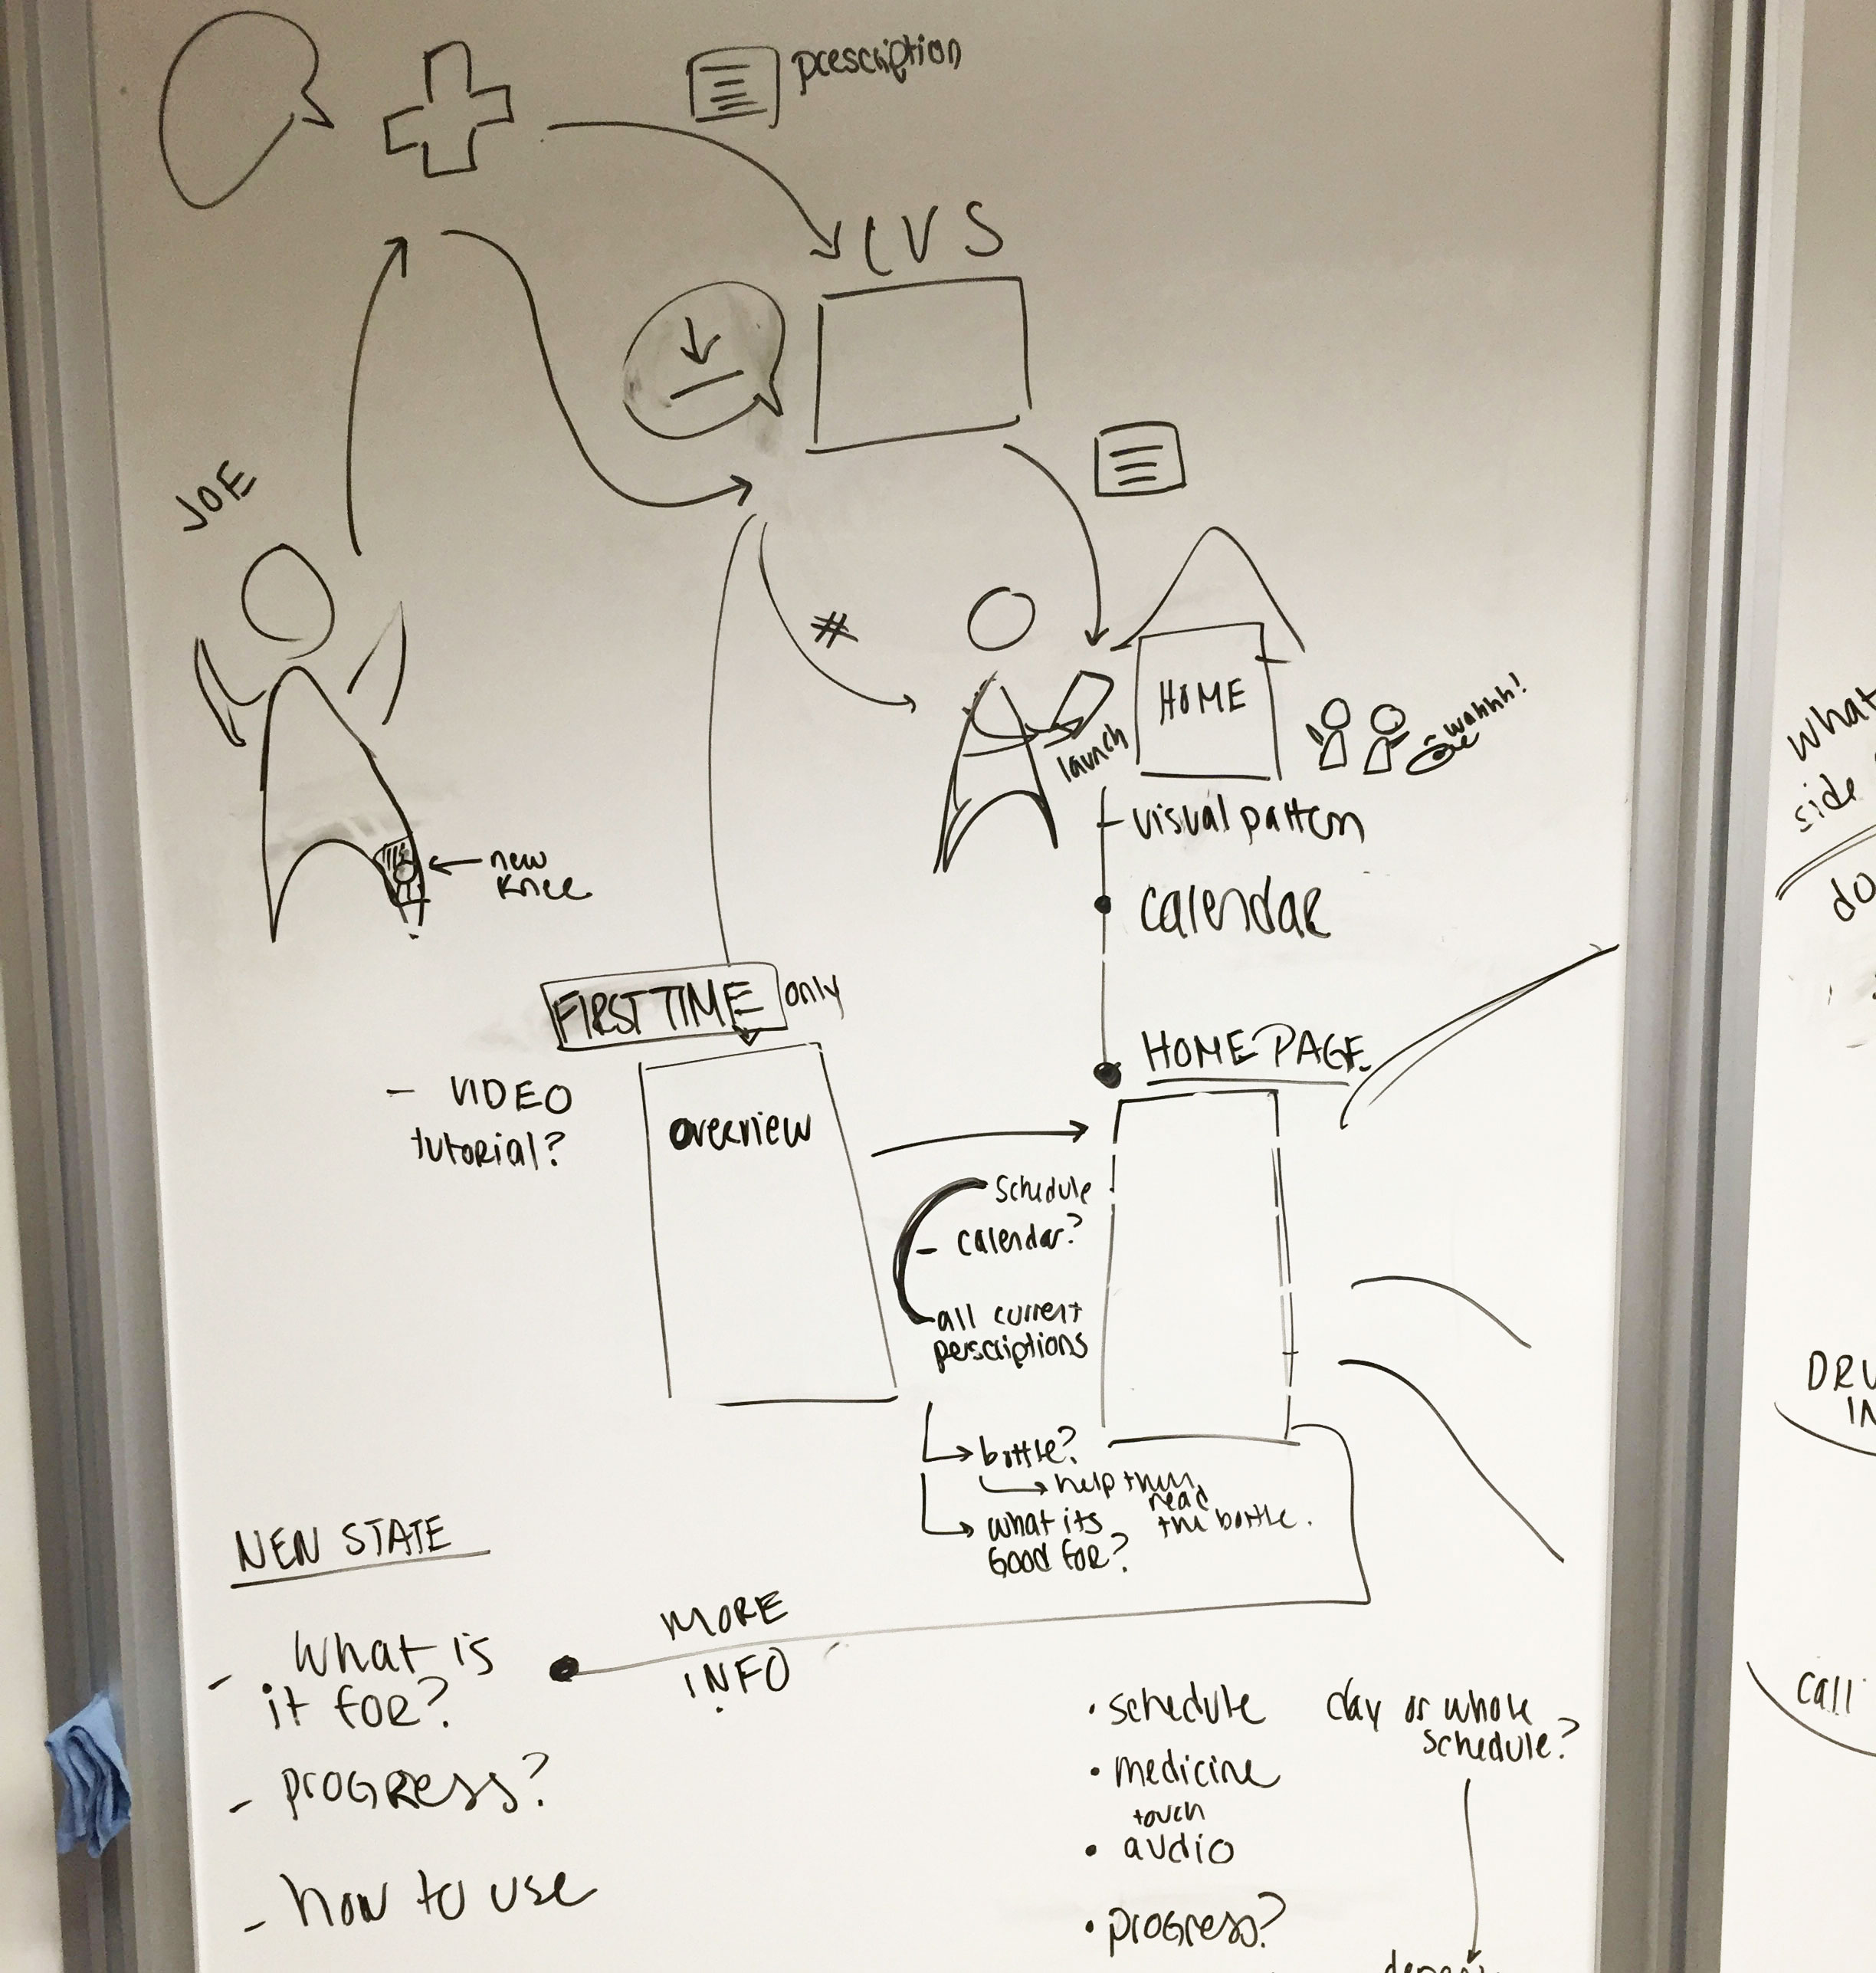 prescription
CVS
JOE
#
HOME
launch
wahhh!
visual pattern
new
knee
calendar
FIRST TIME only
HOMEPAGE
- VIDEO
tutorial?
overview
schedule
- calendar?
all current
perscriptions
bottle?
help them
read
the bottle.
what its
good for?
NEW STATE
MORE
INFO
- what is
it for?
- progress?
- how to use
• schedule
• medicine
touch
• audio
• progress?
day or whole
schedule?
what
side
do
DRU
IN
call